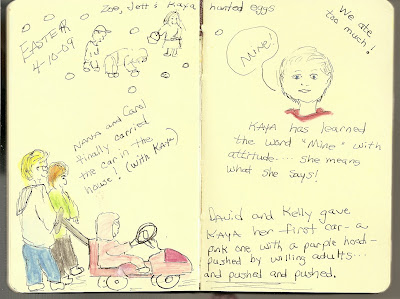 Zoe, Jett & Kaya hunted eggs
EASTER
4-10-09
NANA and Carol
finally carried
the car in the
house! (with KAYA)
We ate
too much!
Mine!
KAYA has learned
the word "Mine" with
attitude.... she means
what she says!
David and Kelly gave
KAYA her first car - a
pink one with a purple hood -
pushed by willing adults...
and pushed and pushed.